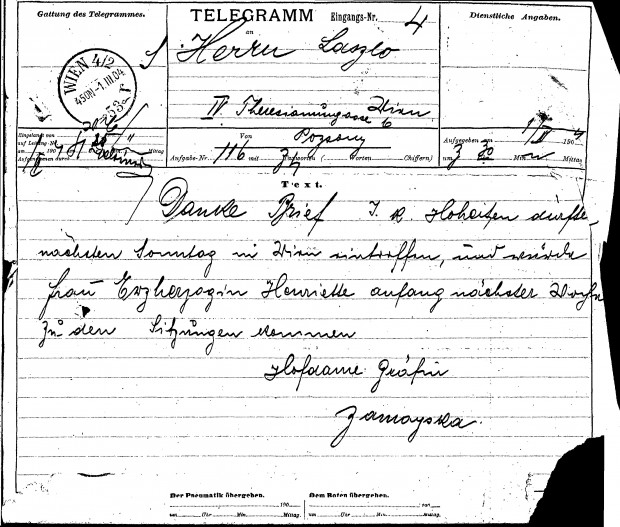 Gattung des Telegrammes.
TELEGRAMM
Eingangs-Nr. 4
Dienstliche Angaben.
an
Herrn Laszlo
IV. Theresianumgasse 6
Wien
WIEN 4/2
1.III.04
Eingelangt von
auf Leitung Nr.
am 190 um Uhr Mittag
Aufgenommen durch
Von Pozsony
Aufgabe-Nr. 116 mit Taxworten ( Worten Chiffern)
Aufgegeben am 190
um 3 30 Min. Mittag
Text.
Danke Brief I. k. Hoheiten dürften
nächsten Sonntag in Wien eintreffen, und würde
Frau Erzherzogin Henriette anfang nächster Woche
zu den Sitzungen kommen
Hofdame Gräfin
Zamoyska.
Der Pneumatik übergeben.
190
um Uhr Min. Mittag.
Dem Boten übergeben.
190
um Uhr Min. Mittag.